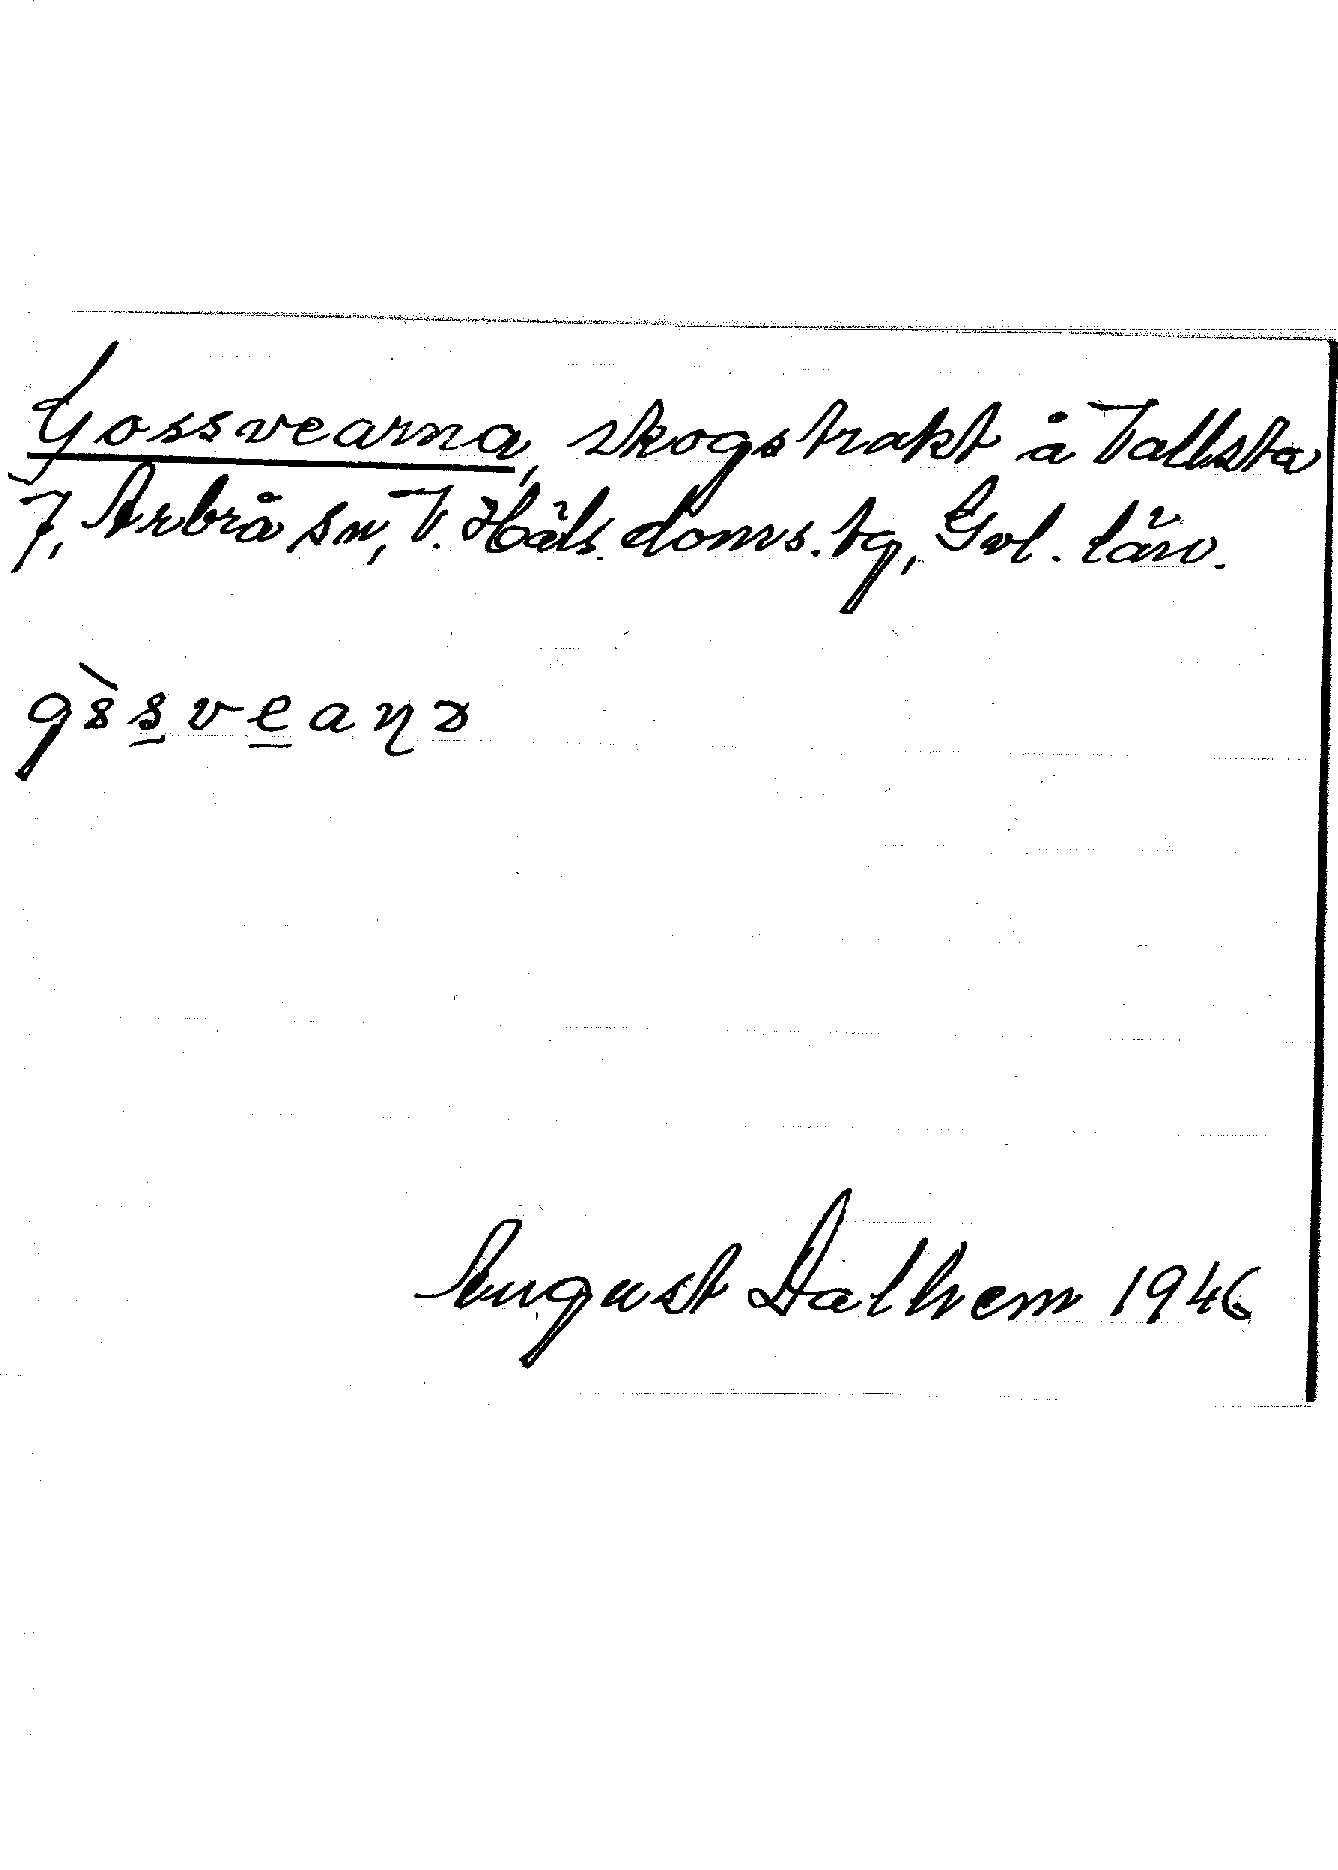 Gossvearna, skogstrakt å Vallsta
7, Arbrå sn, V. Häls. doms. tg, Gvl. län.
August Dalhem 1946